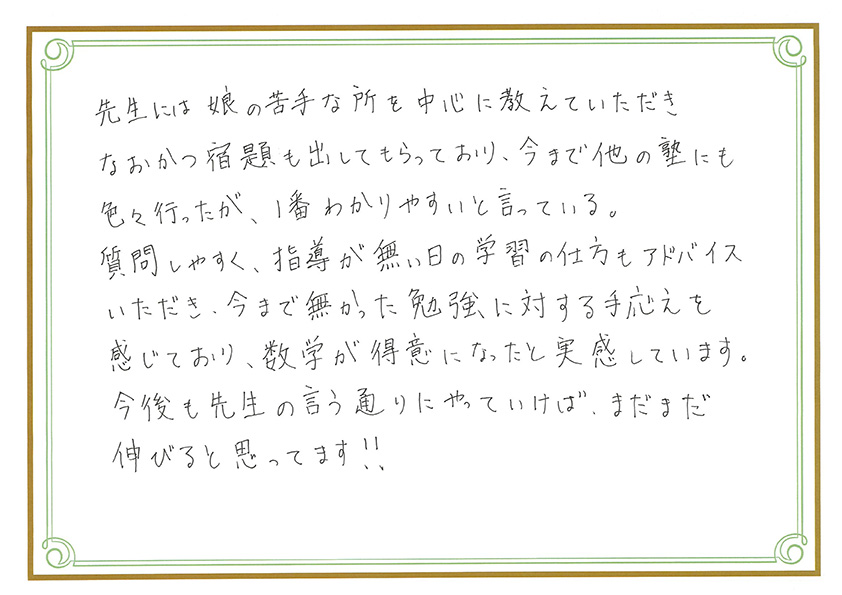 先生には娘の苦手な所を中心に教えていただき
なおかつ宿題も出してもらっており、今まで他の塾にも
色々行ったが、1番わかりやすいと言っている。
質問しやすく、指導が無い日の学習の仕方もアドバイス
いただき、今まで無かった勉強に対する手応えを
感じており、数学が得意になったと実感しています。
今後も先生の言う通りにやっていけば、まだまだ
伸びると思ってます!!